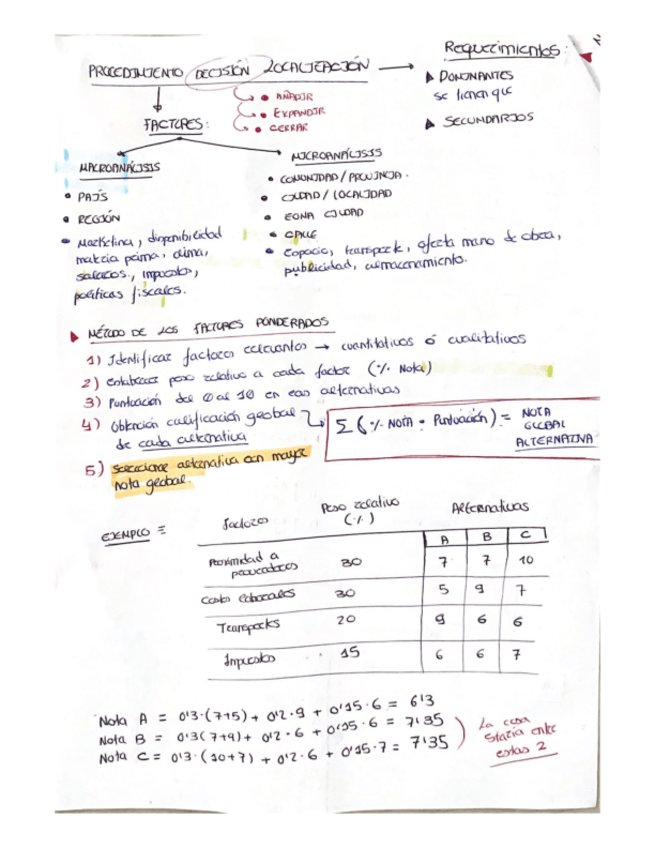 PROCEDIMIENTO DECISIÓN LOCALIZACIÓN →
Requerimientos:
▲ DOMINANTES
se tienen que
▲ SECUNDARIOS
• AÑADIR
• EXPANDIR
• CERRAR
FACTORES:
MACROANÁLISIS
• PAÍS
• REGIÓN
• Marketing, disponibilidad
materia prima, clima,
salarios, impuestos,
políticas fiscales.
MICROANÁLISIS
• COMUNIDAD/PROVINCIA.
• CIUDAD/LOCALIDAD
• ZONA CIUDAD
• CALLE
• Espacio, transporte, afecta mano de obra,
publicidad, almacenamiento.
MÉTODO DE LOS FACTORES PONDERADOS
1) Identificar factores relevantes → cuantitativos ó cualitativos
2) Establecer peso relativo a cada factor (% Nota)
3) Puntuación del 0 al 10 en cas alternativas
4) Obtención calificación global
de cada alternativa
Σ (% NOTA · Puntuación) = NOTA
GLOBAL
ALTERNATIVA
5) Seleccionar alternativa con mayor
nota global.
EJEMPLO =
Factores Peso relativo (%) Alternativas
A B C
Proximidad a proveedores 30 7 7 10
Costes laborales 30 5 9 7
Transportes 20 9 6 6
Impuestos 15 6 6 7
Nota A = 0'3·(7+5) + 0'2·9 + 0'15·6 = 6'3
Nota B = 0'3(7+9) + 0'2·6 + 0'15·6 = 7'35
Nota C = 0'3·(10+7) + 0'2·6 + 0'15·7 = 7'35
La cosa
staría entre
estas 2